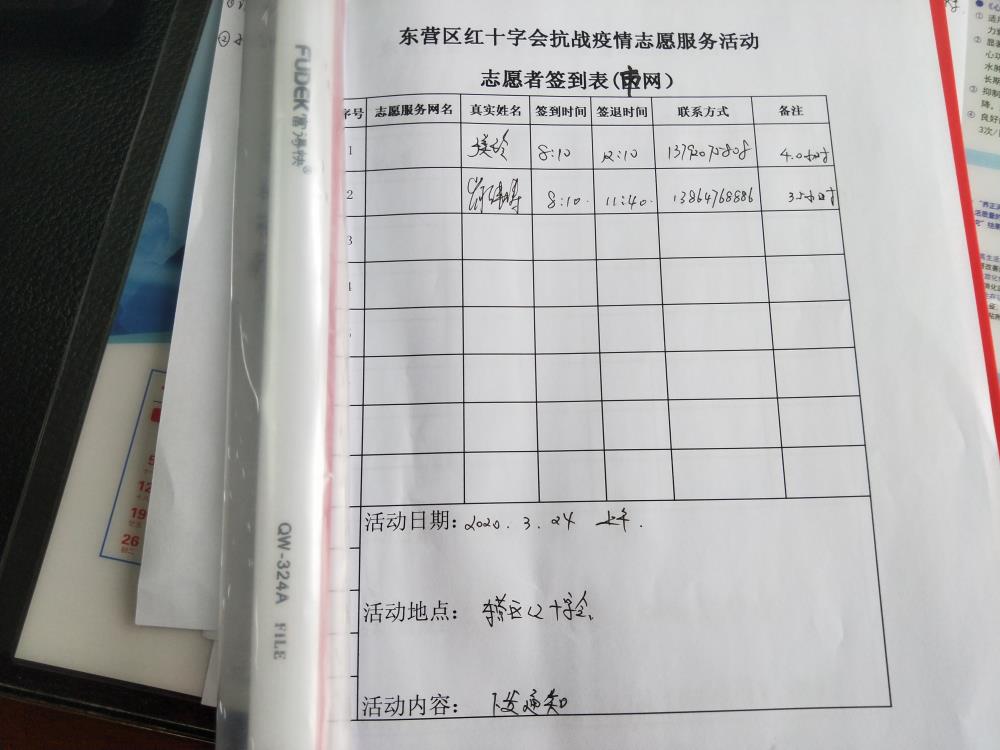 东营区红十字会抗战疫情志愿服务活动
志愿者签到表(网)
序号 志愿服务网名 真实姓名 签到时间 签退时间 联系方式 备注
1 8:10 12:10 13792075808 4.0小时
2 8:10. 11:40. 13864768886 3.5小时
3
活动日期: 2020.3.24 上午.
活动地点: 东营区红十字会.
活动内容: 下发通知
FUDEK富得快®
QW-324A FILE
5
12
19
26